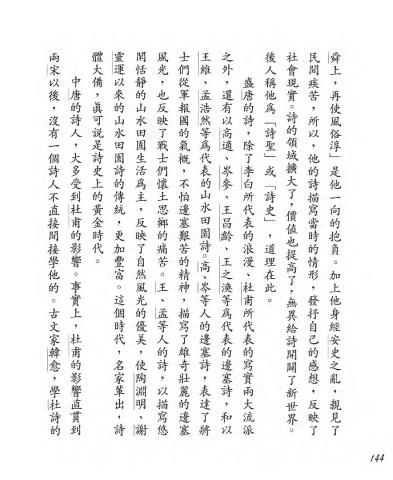 舜上，再使風俗淳」是他一向的抱負。加上他身經安史之亂，親見了
民間疾苦，所以，他的詩描寫當時的情形，發抒自己的感想，反映了
社會現實。詩的領域擴大了，價值也提高了，無異給詩開闢了新世界。
後人稱他為「詩聖」或「詩史」，道理在此。
盛唐的詩，除了李白所代表的浪漫、杜甫所代表的寫實兩大流派
之外，還有以高適、岑參、王昌齡、王之渙等為代表的邊塞詩，和以
王維、孟浩然等為代表的山水田園詩。高、岑等人的邊塞詩，表達了將
士們從軍報國的氣概，不怕邊塞艱苦的精神，描寫了雄奇壯麗的邊塞
風光，也反映了戰士們懷土思鄉的痛苦。王、孟等人的詩，以描寫悠
閒恬靜的山水田園生活為主，反映了自然風光的優美，使陶淵明、謝
靈運以來的山水田園詩的傳統，更加豐富。這個時代，名家輩出，詩
體大備，真可說是詩史上的黃金時代。
中唐的詩人，大多受到杜甫的影響。事實上，杜甫的影響直貫到
兩宋以後，沒有一個詩人不直接間接學他的。古文家韓愈，學杜詩的
144